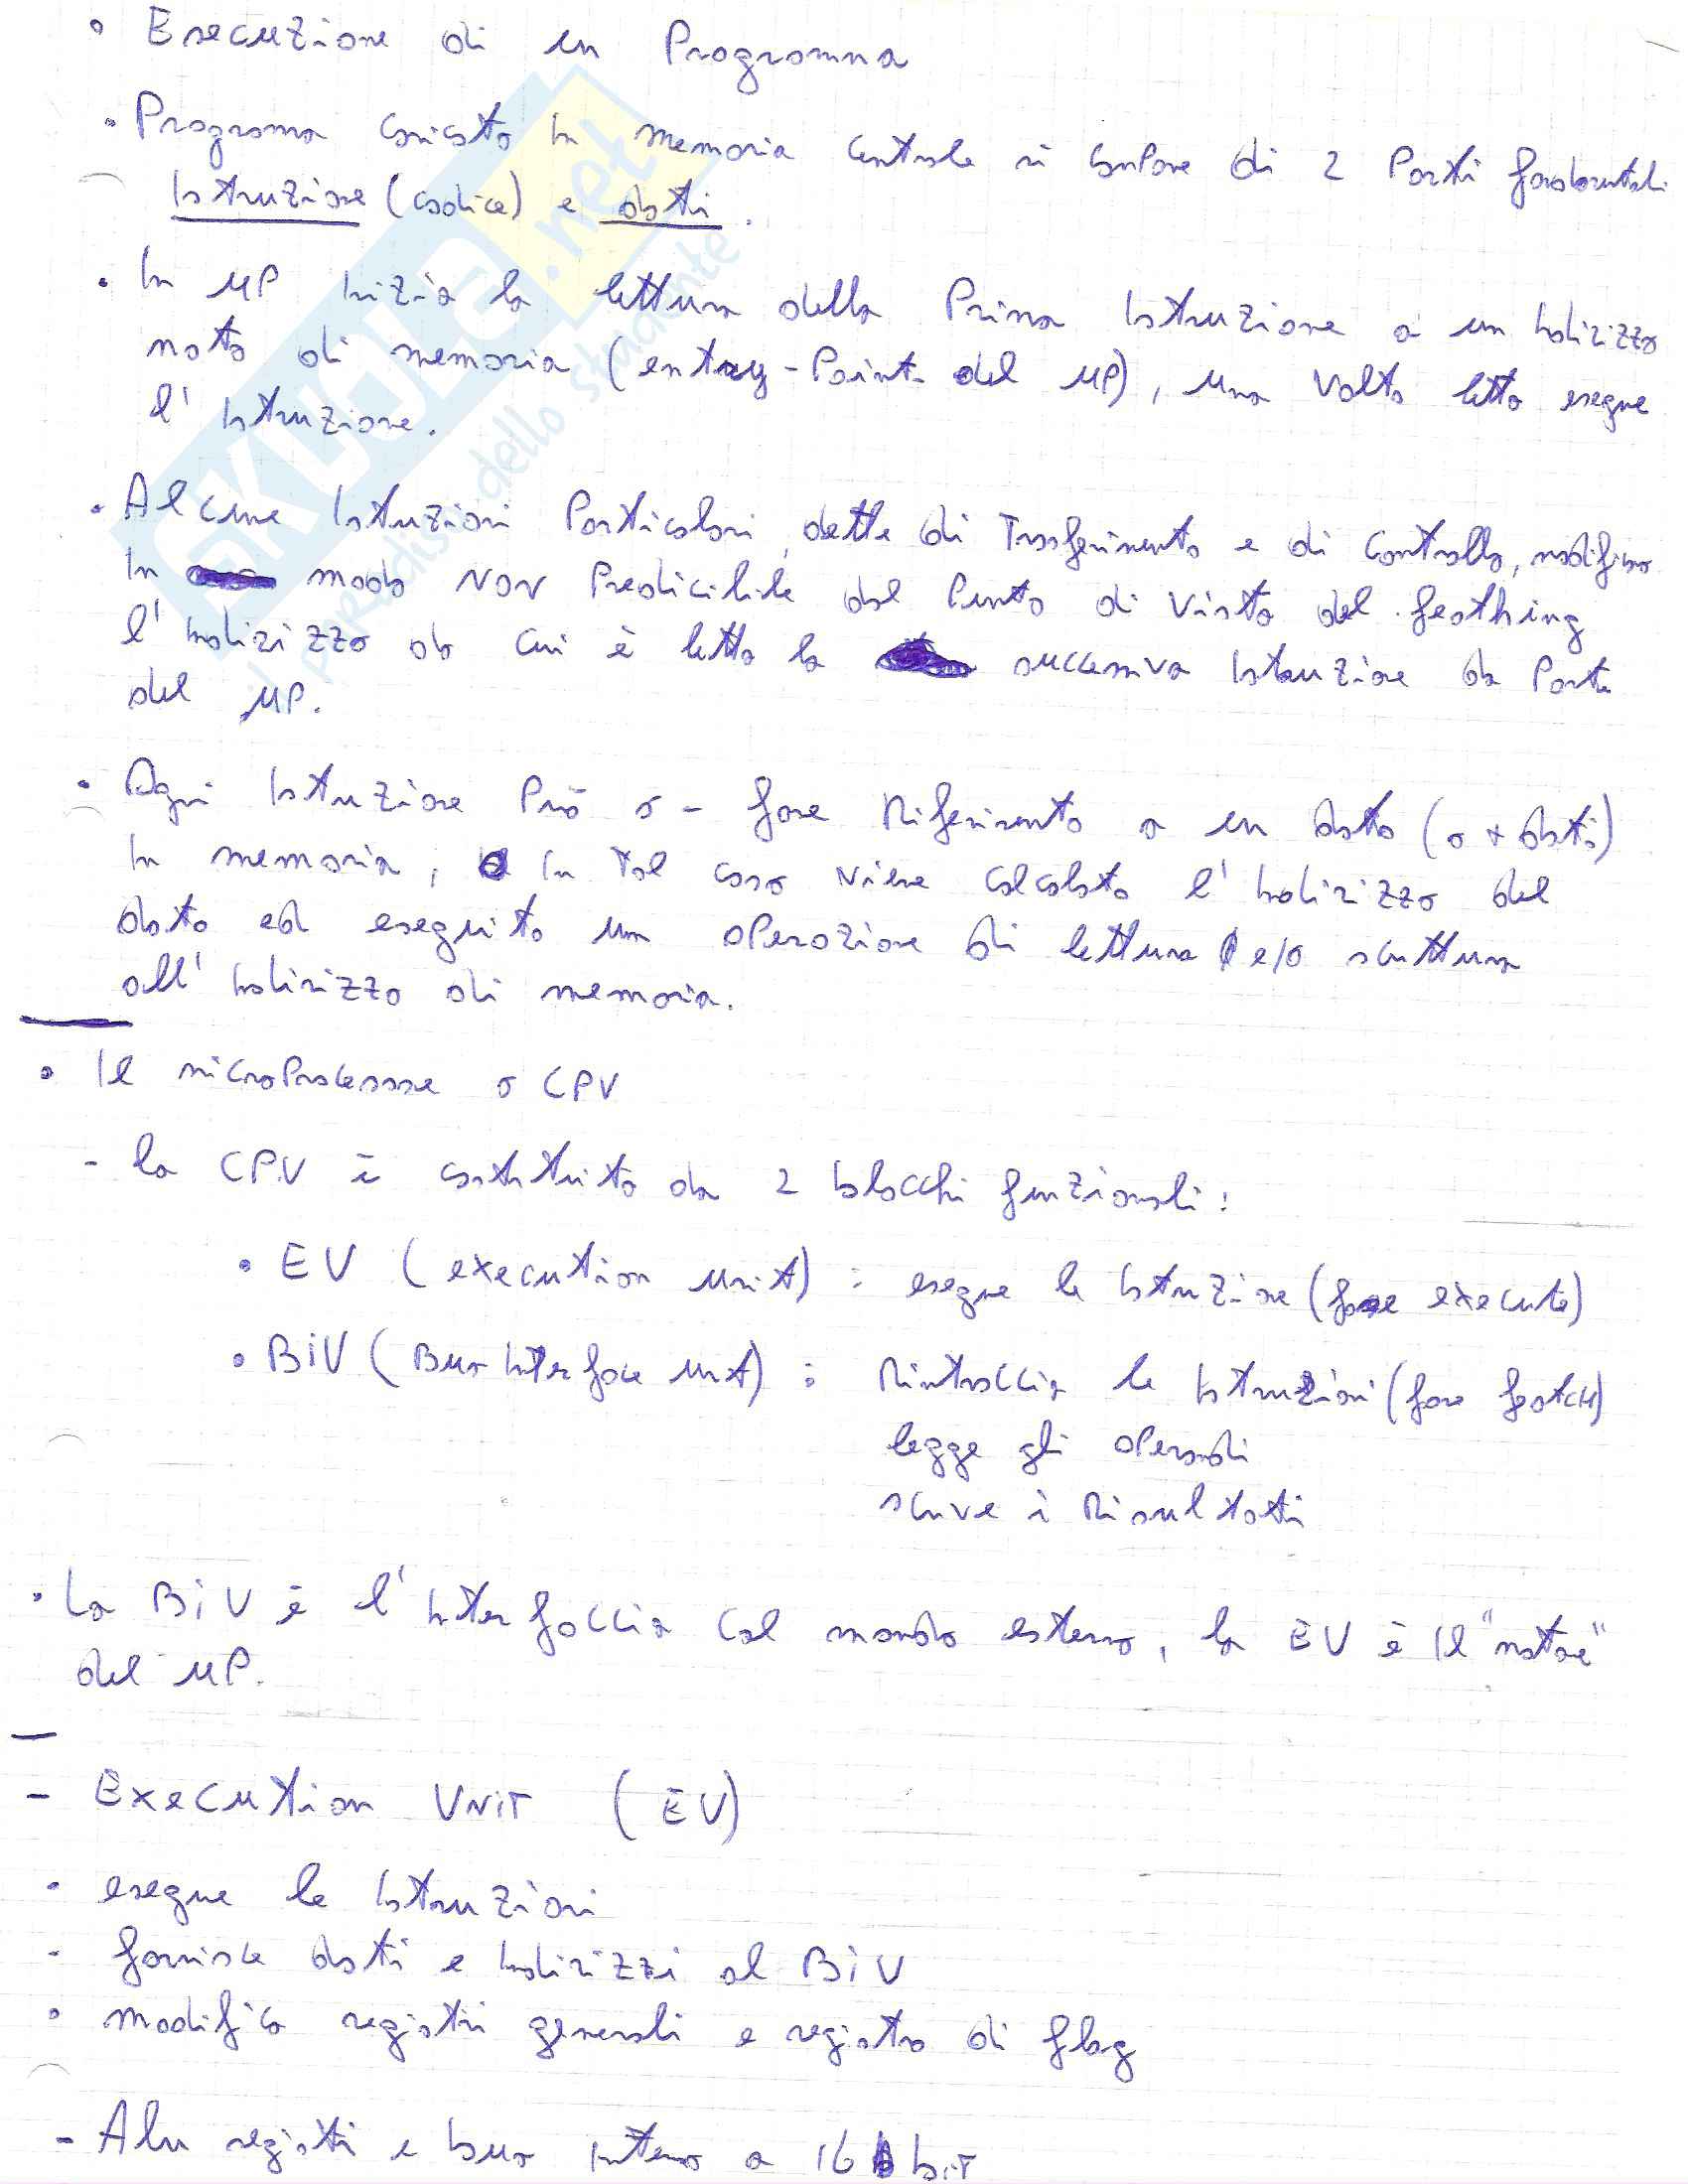 • Esecuzione di un Programma
• Programma caricato in memoria centrale si compone di 2 Parti fondamentali
Istruzione (codice) e dati.
• In μP inizia la lettura della Prima Istruzione a un Indirizzo
noto di memoria (entry-Point del μP), una volta letta esegue
l'Istruzione.
• Alcune Istruzioni Particolari, dette di Trasferimento e di Controllo, modificano
In modo NON Predicibile dal Punto di Vista del feathing
l'Indirizzo da cui è letta la successiva Istruzione da Parte
del μP.
• Ogni Istruzione Può o - fare Riferimento a un dato (o + dati)
In memoria, In Tal caso viene calcolato l'Indirizzo del
dato ed eseguito un operazione di lettura e/o scrittura
all'Indirizzo di memoria.
• Il microProcessore o CPU
- la CPU è costituita da 2 blocchi funzionali:
• EU (execution unit) : esegue le Istruzione (fase execute)
• BiU (Bus Interface unit) : Rintraccia le Istruzioni (fase featch)
legge gli operandi
scrive i Risultati
• La BiU è l'Interfaccia col mondo esterno, la EU è Il "motore"
del μP.
- Execution Unit (EU)
• esegue le Istruzioni
- fornisce dati e Indirizzi al BiU
• modifica registri generali e registro di flag
- Alu registri e bus Interno a 16 bit
SKUOLA.net
il paradiso dello studente